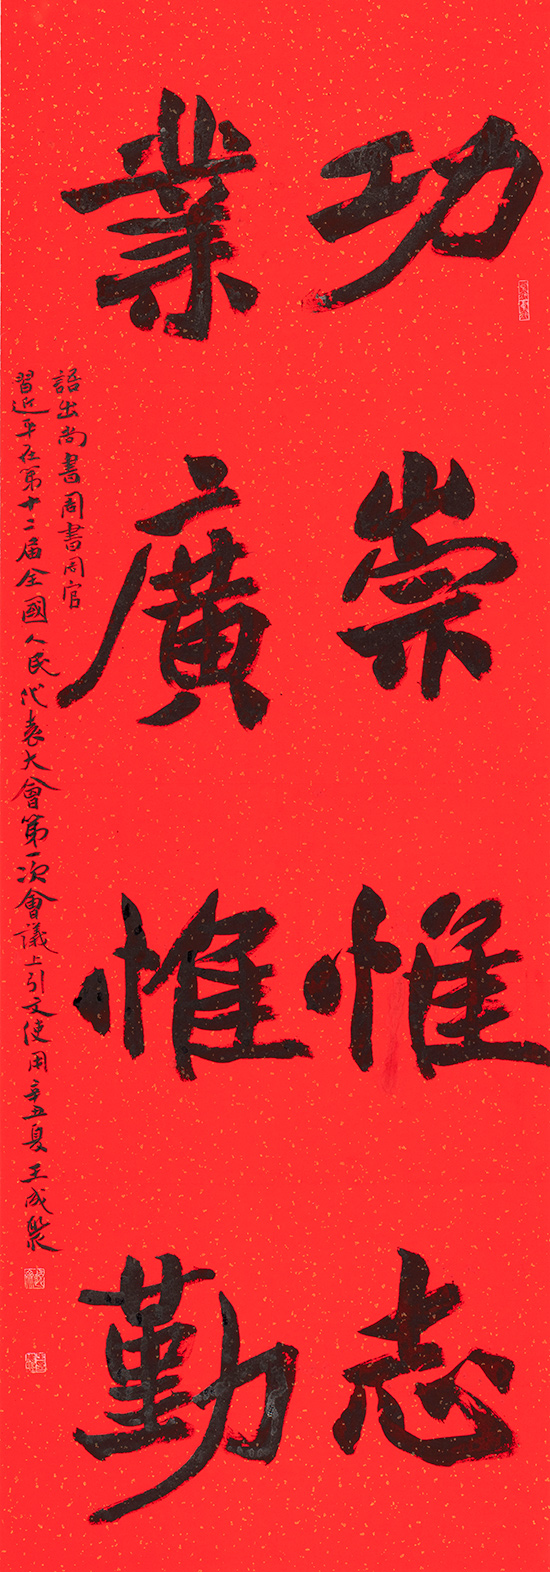 功崇惟志
業廣惟勤
語出尚書周書周官
習近平在第十二屆全國人民代表大會第一次會議上引文使用辛丑夏王成聚